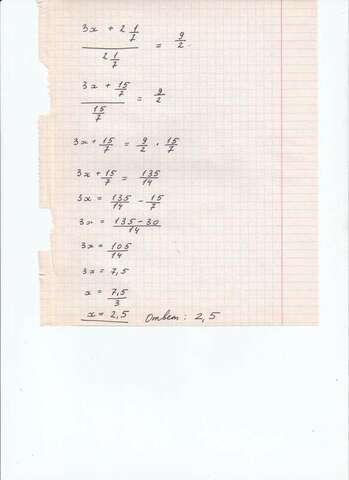 (3x + 2 1/7) / (2 1/7) = 9/2
(3x + 15/7) / (15/7) = 9/2
3x + 15/7 = 9/2 · 15/7
3x + 15/7 = 135/14
3x = 135/14 - 15/7
3x = (135 - 30)/14
3x = 105/14
3x = 7,5
x = 7,5/3
x = 2,5 Ответ: 2,5